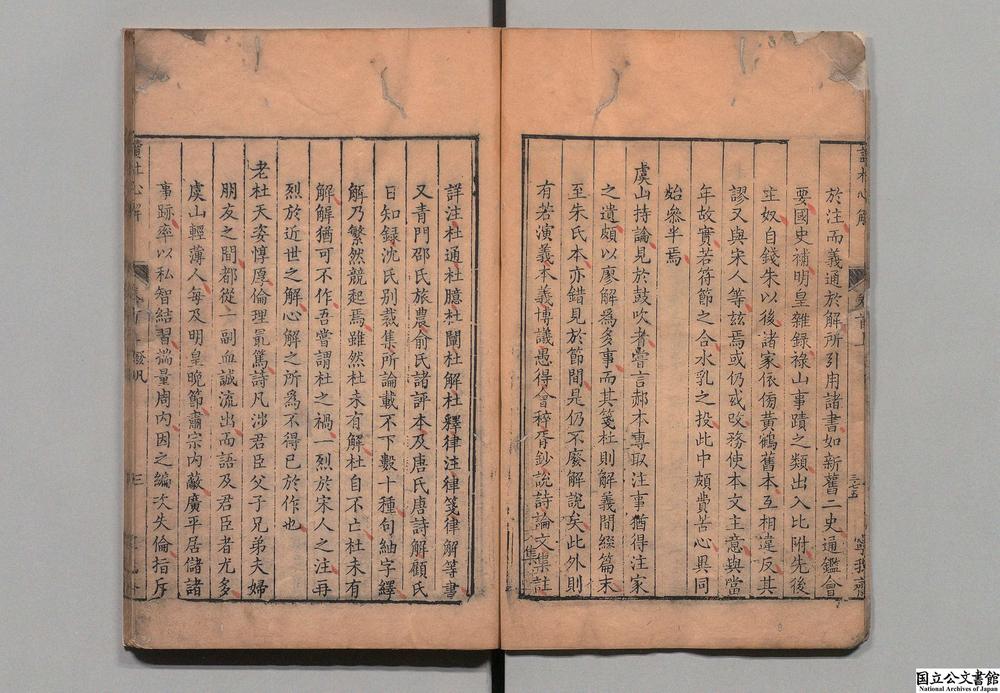 於注而義通於解所引用諸書如新舊二史通鑑會
要國史補明皇雜錄祿山事蹟之類出入比附先後
主奴自錢朱以後諸家依傍黃鶴舊本互相違反其
謬又與宋人等玆焉或仍或改務使本文主意與當
年故實若符節之合水乳之投此中頗費苦心異同
始參半焉
虞山持論見於鼓吹者嘗言郝本專取注事猶得注家
之遺頗以廖解為多事而其箋杜則解義間綴篇末
至朱氏本亦錯見於節間是仍不廢解說矣此外則
有若演義本義博議愚得會稡胥鈔說詩論文集註
集
詳注杜通杜臆杜闡杜解杜釋律注律箋律解等書
又青門邵氏旅農俞氏諸評本及唐氏唐詩解顧氏
日知録沈氏别裁集所論載不下數十種句紬字繹
解乃繁然競起焉雖然杜未有解杜自不亡杜未有
解解猶可不作吾嘗謂杜之禍一烈於宋人之注再
烈於近世之解心解之所為不得已於作也
老杜天姿惇厚倫理最篤詩凡涉君臣父子兄弟夫婦
朋友之間都從一副血誠流出而語及君臣者尤多
虞山輕薄人每及明皇晚節肅宗内蔽廣平居儲諸
事跡率以私智結習揣量周内因之編次失倫指斥
讀杜心解
發凡
三
寧我齋
国立公文書館
National Archives of Japan